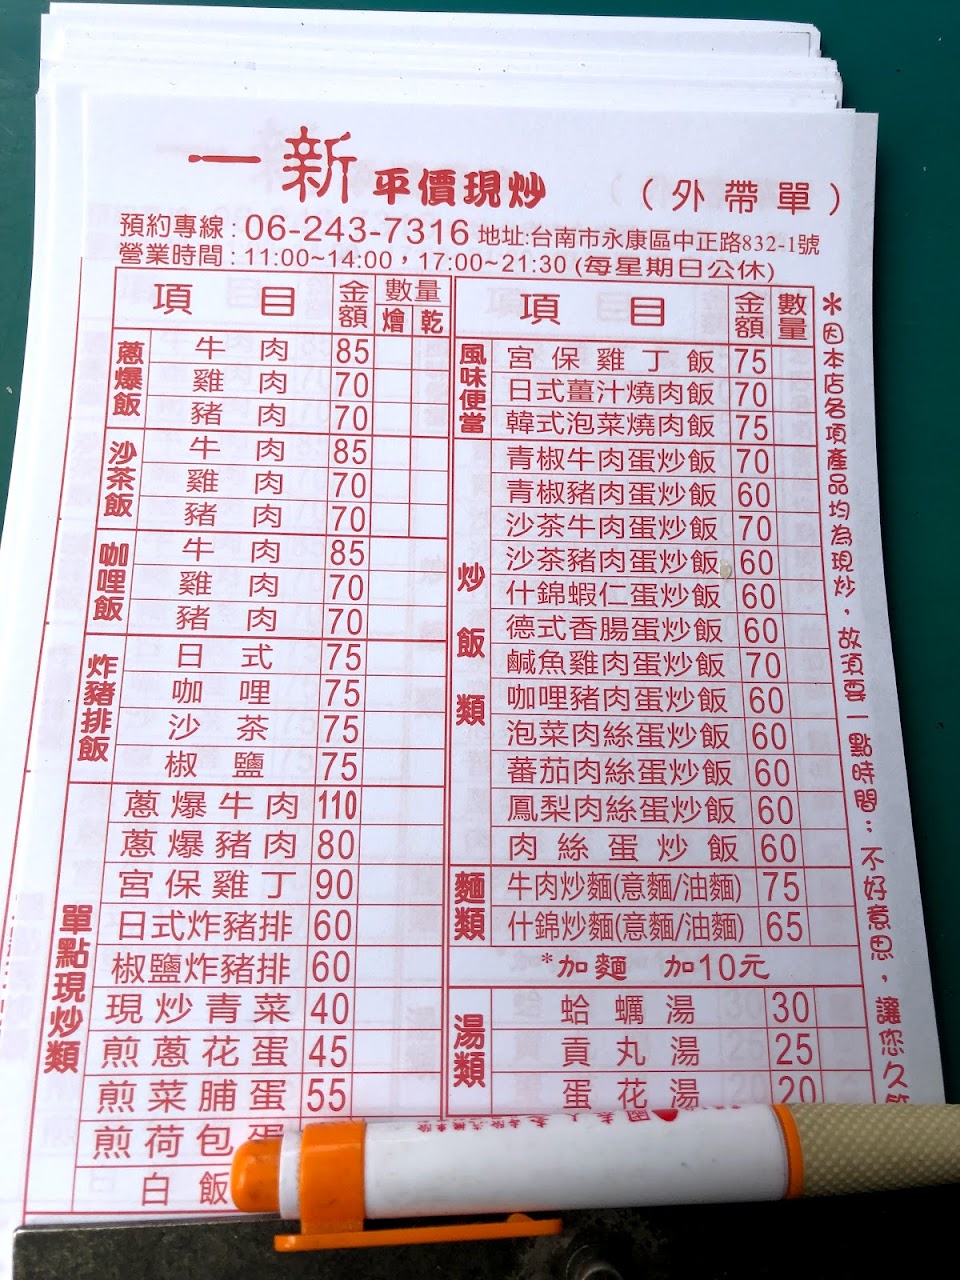 一新 平價現炒 (外帶單)
預約專線:06-243-7316 地址:台南市永康區中正路832-1號
營業時間:11:00~14:00,17:00~21:30 (每星期日公休)
項目 金額 數量 燴 乾
蔥爆飯
牛肉 85
雞肉 70
豬肉 70
沙茶飯
牛肉 85
雞肉 70
豬肉 70
咖哩飯
牛肉 85
雞肉 70
豬肉 70
炸豬排飯
日式 75
咖哩 75
沙茶 75
椒鹽 75
單點現炒類
蔥爆牛肉 110
蔥爆豬肉 80
宮保雞丁 90
日式炸豬排 60
椒鹽炸豬排 60
現炒青菜 40
煎蔥花蛋 45
煎菜脯蛋 55
煎荷包蛋
白飯
項目 金額 數量
風味便當
宮保雞丁飯 75
日式薑汁燒肉飯 70
韓式泡菜燒肉飯 75
炒飯類
青椒牛肉蛋炒飯 70
青椒豬肉蛋炒飯 60
沙茶牛肉蛋炒飯 70
沙茶豬肉蛋炒飯 60
什錦蝦仁蛋炒飯 60
德式香腸蛋炒飯 60
鹹魚雞肉蛋炒飯 70
咖哩豬肉蛋炒飯 60
泡菜肉絲蛋炒飯 60
蕃茄肉絲蛋炒飯 60
鳳梨肉絲蛋炒飯 60
肉絲蛋炒飯 60
麵類
牛肉炒麵(意麵/油麵) 75
什錦炒麵(意麵/油麵) 65
*加麵 加10元
湯類
蛤蠣湯 30
貢丸湯 25
蛋花湯 20
*因本店各項產品均為現炒,故須要一點時間;不好意思,讓您久